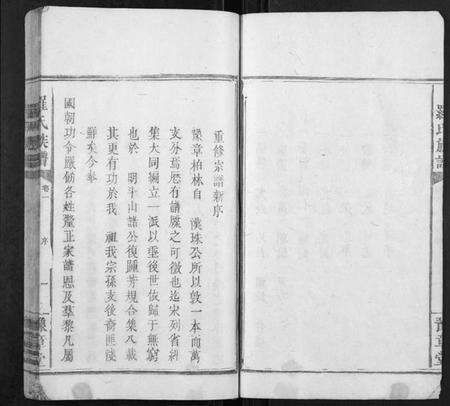 重修宗譜新序
豫章柏林自 漢珠公所以敦一本而萬
支分焉歷有譜牒之可徵也迄宋列省經
集大同編立一派以垂後世依歸于無窮
也於 明斗山諸公復踵芳規合集八載
其更有功於我 祖我宗孫支後裔匪淺
鮮矣今奉
國朝功令嚴飭各姓釐正家譜恩及羣黎凡屬
羅氏族譜 卷一 序 一 豫章堂
羅氏族譜 豫章堂